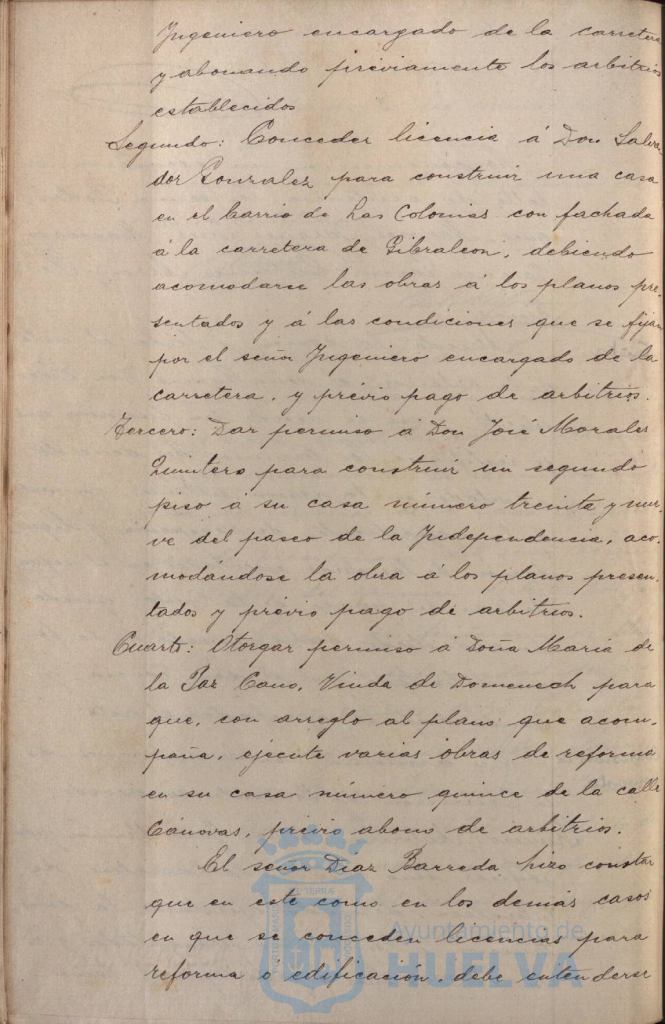 Ingeniero encargado de la carretera
y abonando préviamente los arbitrios
establecidos
Segundo: Conceder licencia á Don Salva-
dor Gonzalez para construir una casa
en el barrio de Las Colonias con fachada
á la carretera de Gibraleon, debiendo
acomodarse las obras á los planos pre-
sentados y á las condiciones que se fijan
por el señor Ingeniero encargado de la
carretera, y prévio pago de arbitrios.
Tercero: Dar permiso á Don José Morales
Quintero para construir un segundo
piso á su casa número treinta y nue-
ve del paseo de la Independencia, aco-
modándose la obra á los planos presen-
tados y prévio pago de arbitrios.
Cuarto: Otorgar permiso á Doña Maria de
la Paz Cano, Viuda de Domenech para
que, con arreglo al plano que acom-
paña, ejecute varias obras de reforma
en su casa número quince de la calle
Cánovas, prévio abono de arbitrios.
El señor Díaz Barreda hizo constar
que en este como en los demás casos
en que se conceden licencias para
reforma ó edificación, debe entenderse
Ayuntamiento de
HUELVA